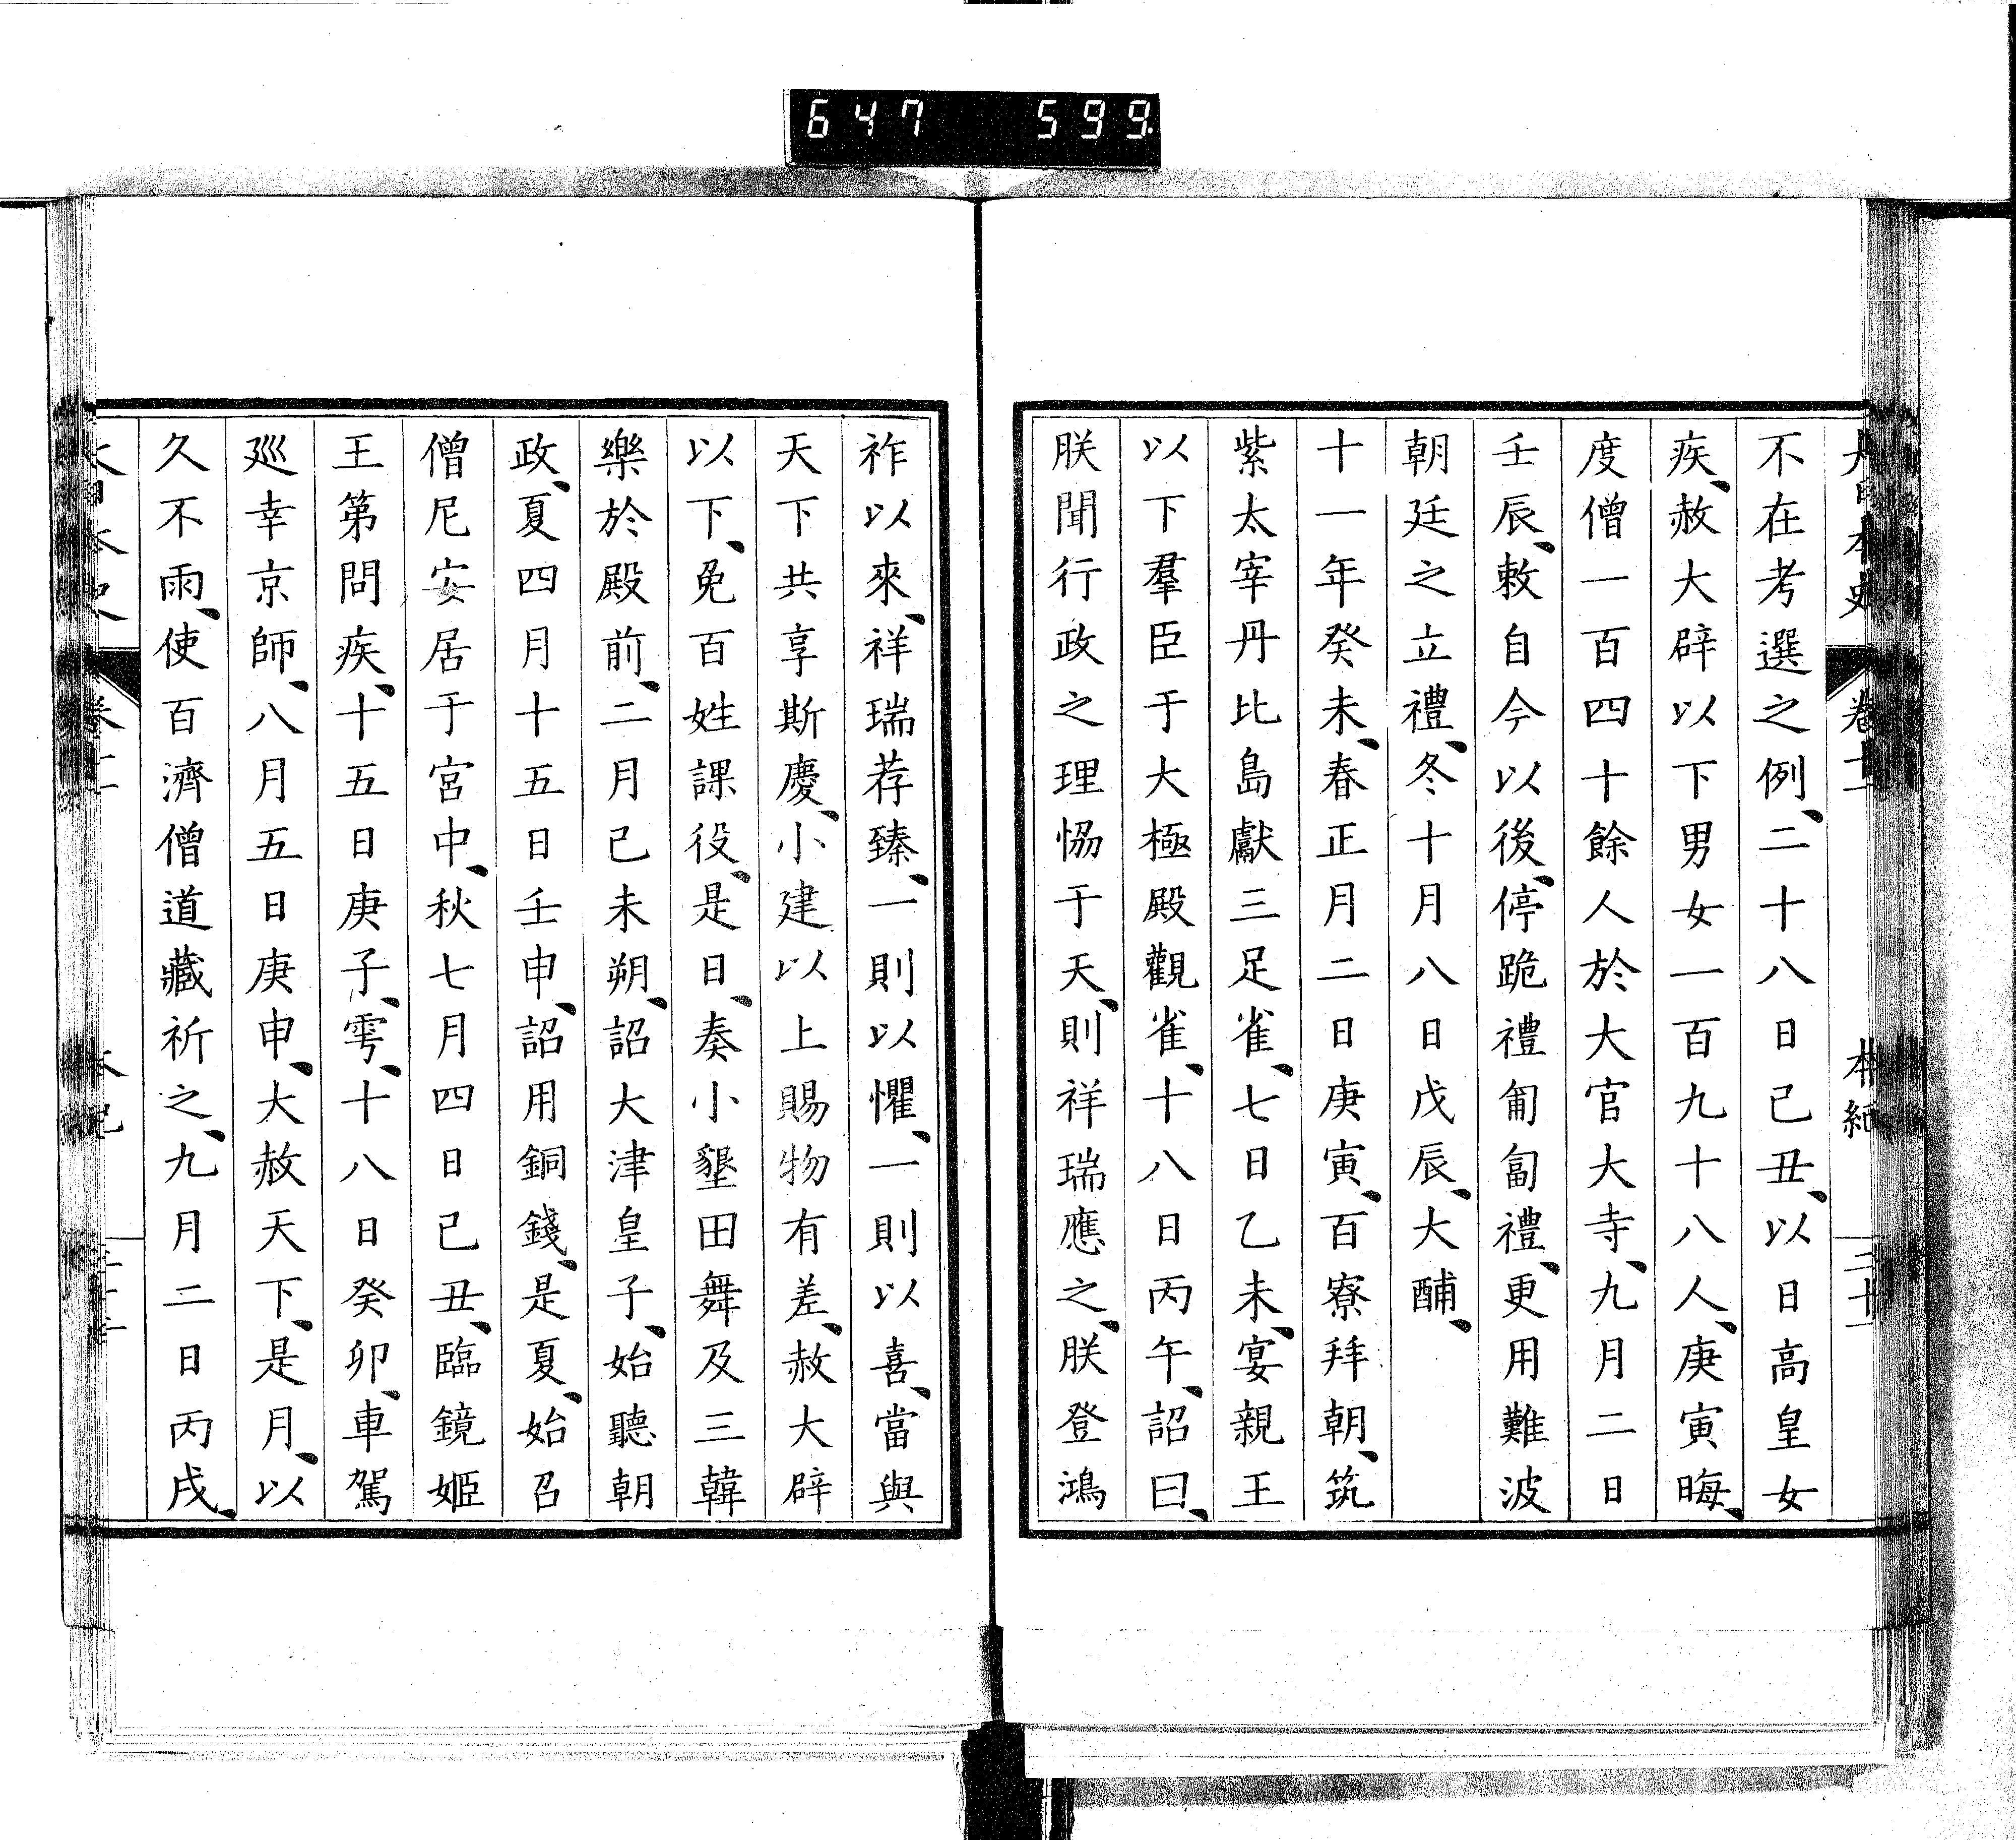 647 599.
大日本史 卷十一 本紀 三十一
不在考選之例、二十八日己丑、以日高皇女
疾、赦大辟以下男女一百九十八人、庚寅晦、
度僧一百四十餘人於大官大寺、九月二日
壬辰、敕自今以後、停跪禮匍匐禮、更用難波
朝廷之立禮、冬十月八日戊辰、大酺、
十一年癸未、春正月二日庚寅、百寮拜朝、筑
紫太宰丹比島獻三足雀、七日乙未、宴親王
以下羣臣于大極殿觀雀、十八日丙午、詔曰、
朕聞行政之理恊于天、則祥瑞應之、朕登鴻
祚以來、祥瑞荐臻、一則以懼、一則以喜、當與
天下共享斯慶、小建以上賜物有差、赦大辟
以下、免百姓課役、是日、奏小墾田舞及三韓
樂於殿前、二月己未朔、詔大津皇子、始聽朝
政、夏四月十五日壬申、詔用銅錢、是夏、始召
僧尼安居于宮中、秋七月四日己丑、臨鏡姬
王第問疾、十五日庚子、雩、十八日癸卯、車駕
巡幸京師、八月五日庚申、大赦天下、是月、以
久不雨、使百濟僧道藏祈之、九月二日丙戌、